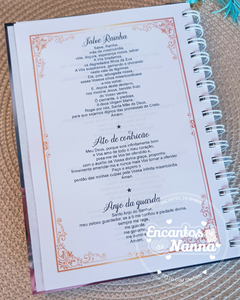 Salve Rainha
Salve, Rainha,
mãe de misericórdia,
vida, doçura, esperança nossa, salve!
A Vós bradamos,
os degredados filhos de Eva.
A Vós suspiramos, gemendo e chorando
neste vale de lágrimas.
Eia, pois, advogada nossa,
esses Vossos olhos misericordiosos
a nós volvei.
E, depois deste desterro,
nos mostrai Jesus, bendito fruto
do Vosso ventre.
Ó clemente, ó piedosa,
ó doce Virgem Maria.
Rogai por nós, Santa Mãe de Deus,
para que sejamos dignos das promessas de Cristo.
Amém.
Ato de contrição
Meu Deus,
e Vos amo de todo o meu coração,
pesa-me de Vos ter ofendido e,
com o auxílio da Vossa divina graça, proponho
firmemente emendar-me e nunca mais Vos tornar a ofender.
Peço e espero o
perdão das minhas culpas pela Vossa infinita misericórdia.
Amém.
Anjo da guarda
Santo Anjo do Senhor,
meu zeloso guardador, se a ti me confiou a piedade divina,
sempre me rege,
me
me
Amém.
Encantos
da
Nanna